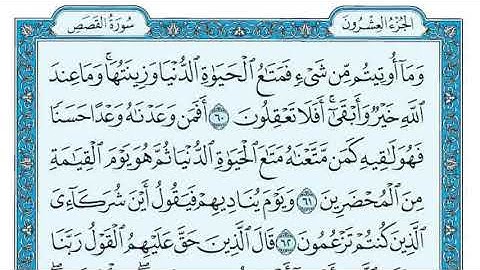 الجُزْءُ العِشْرُونَ سُورَةُ القَصَصِ
وَمَآ أُوتِيتُم مِّن شَىْءٍ فَمَتَٰعُ ٱلْحَيَوٰةِ ٱلدُّنْيَا وَزِينَتُهَا ۚ وَمَا عِندَ
ٱللَّهِ خَيْرٌ وَأَبْقَىٰٓ ۚ أَفَلَا تَعْقِلُونَ ٦٠ أَفَمَن وَعَدْنَٰهُ وَعْدًا حَسَنًا
فَهُوَ لَٰقِيهِ كَمَن مَّتَّعْنَٰهُ مَتَٰعَ ٱلْحَيَوٰةِ ٱلدُّنْيَا ثُمَّ هُوَ يَوْمَ ٱلْقِيَٰمَةِ
مِنَ ٱلْمُحْضَرِينَ ٦١ وَيَوْمَ يُنَادِيهِمْ فَيَقُولُ أَيْنَ شُرَكَآءِىَ
ٱلَّذِينَ كُنتُمْ تَزْعُمُونَ ٦٢ قَالَ ٱلَّذِينَ حَقَّ عَلَيْهِمُ ٱلْقَوْلُ رَبَّنَا